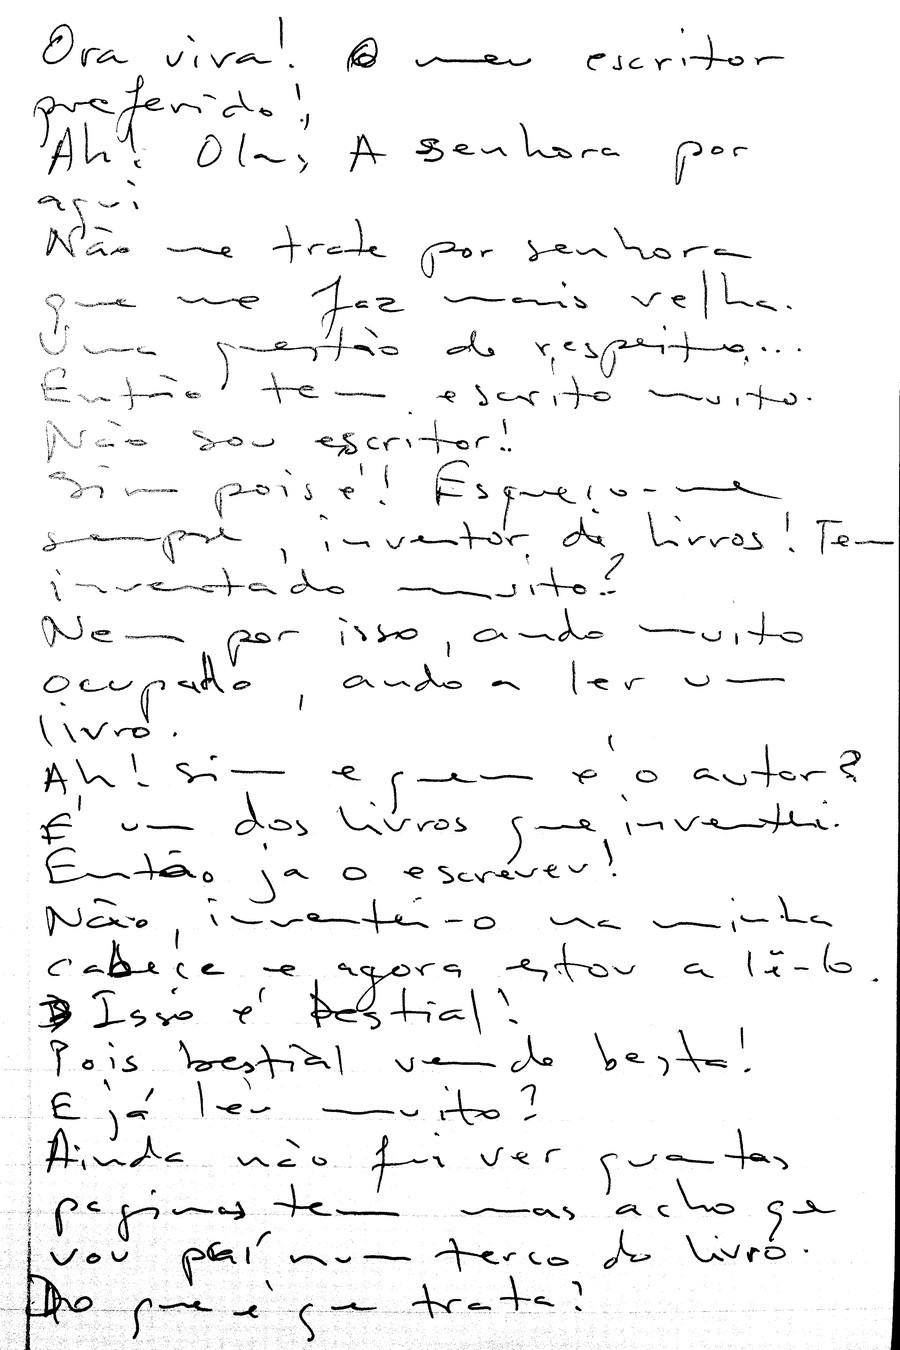 Ora viva! O meu escritor
preferido!
Ah! Olá, A senhora por
aqui
Não me trate por senhora
que me faz mais velha.
Uma questão de respeito...
Então tem escrito muito.
Não sou escritor!
Sim pois é! Esqueço-me
sempre, inventor de livros! Tem
inventado muito?
Nem por isso, ando muito
ocupado, ando a ler um
livro.
Ah! Sim e quem é o autor?
É um dos livros que inventei.
Então ja o escreveu!
Não, inventei-o na minha
cabeça e agora estou a lê-lo.
Isso é bestial!
Pois bestial vem de besta!
E já leu muito?
Ainda não fui ver quantas
paginas tem mas acho que
vou paí num terco do livro.
Do que é que trata?